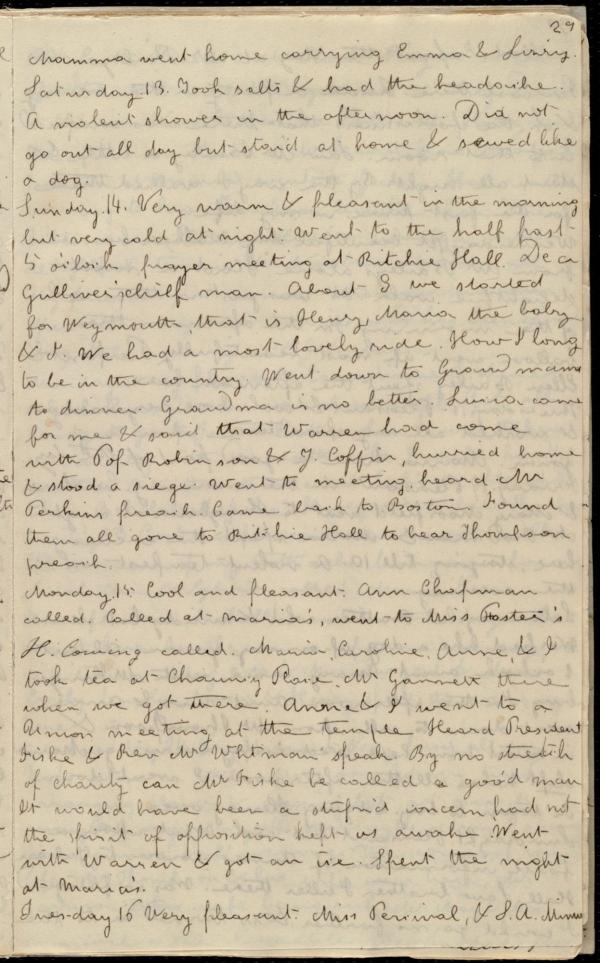 29
Mamma went home carrying Emma & Lizzy.
Saturday 13. Took salts & had the headache.
A violent shower in the afternoon. Did not
go out all day but staid at home & sewed like
a dog.
Sunday 14. Very warm & pleasant in the morning
but very cold at night. Went to the half past
5 o'clock prayer meeting at Ritchie Hall. Dea
Gulliver chief man. About 8 we started
for Weymouth, that is Henry, Maria the baby
& I. We had a most lovely ride. How I long
to be in the country. Went down to Grand mama
to dinner. Grandma is no better. Lucia came
for me & said that Warren had come
with Pof Robinson & J. Coffin, hurried home
& stood a siege. Went to meeting, heard Mr
Perkins preach. Came back to Boston. Found
them all gone to Ritchie Hall to hear Thompson
preach.
Monday. 15 Cool and pleasant. Ann Chapman
called. Called at Maria's, went to Miss Foster's
H. Coming called. Maria, Caroline, Anne, & I
took tea at Chauncy Place. Mr Gannett there
when we got there. Anne & I went to a
Union meeting at the temple. Heard President
Fiske & Rev Mr Whitman speak. By no stretch
of charity can Mr Fiske be called a good man
It would have been a stupid concern had not
the spirit of opposition kept us awake. Went
with Warren & got an ice. Spent the night
at Maria's.
Tuesday 16 Very pleasant. Miss Percival, & S. A.